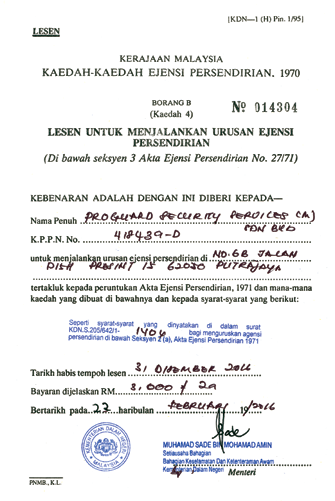 [KDN—1 (H) Pin. 1/95]
LESEN
KERAJAAN MALAYSIA
KAEDAH-KAEDAH EJENSI PERSENDIRIAN. 1970
BORANG B
(Kaedah 4)
Nº 014304
LESEN UNTUK MENJALANKAN URUSAN EJENSI
PERSENDIRIAN
(Di bawah seksyen 3 Akta Ejensi Persendirian No. 27/71)
KEBENARAN ADALAH DENGAN INI DIBERI KEPADA—
Nama Penuh PROGUARD SECURITY SERVICES (M)
SDN BHD
K.P.P.N. No. 418439-D
untuk menjalankan urusan ejensi persendirian di NO.6B JALAN
PRESINT 15 62050 PUTRAJAYA
tertakluk kepada peruntukan Akta Ejensi Persendirian, 1971 dan mana-mana
kaedah yang dibuat di bawahnya dan kepada syarat-syarat yang berikut:
Seperti syarat-syarat yang dinyatakan di dalam surat
KDN.S.205/642/1- 1406 bagi menguruskan agensi
persendirian di bawah Seksyen 2 (a), Akta Ejensi Persendirian 1971
Tarikh habis tempoh lesen 31 DISEMBER 2016
Bayaran dijelaskan RM 3,000 / 2a
Bertarikh pada 23 haribulan FEBRUARI 19/2016
KEMENTERIAN DALAM NEGERI
MALAYSIA
MUHAMAD SADE BIN MOHAMAD AMIN
Setiausaha Bahagian
Bahagian Keselamatan Dan Ketenteraman Awam
Kementerian Dalam Negeri
Menteri
PNMB., K.L.